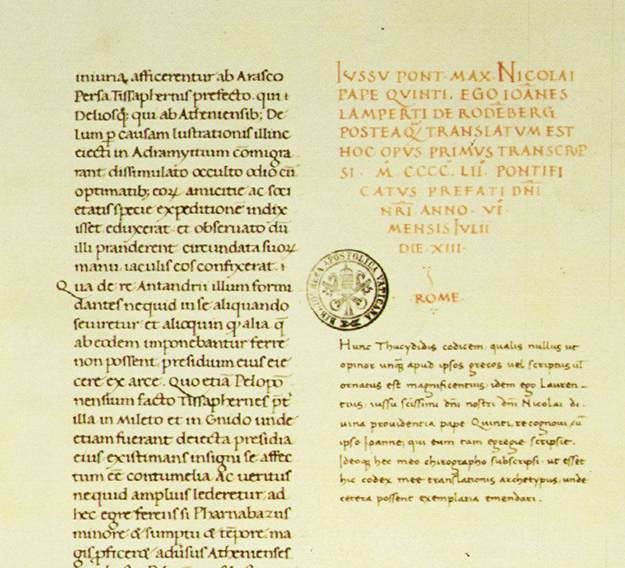 iniuria, afficerentur ab Arsaco
Persa, Tissaphernis prefecto. qui
Deliosq; qui ab Atheniensib; De
lum p causam lustrationis illinc
eiecti in Adramyttium comigra
rant. dissimulato occulto odio cu
optimatib; eorꝝ amicitie ac soci
etatis specie expeditione indix
isset eduxerat. et observato du
illi pranderent circundata suorꝝ
manu iaculis eos confixerat.
Qua de re Antandrii illum formi
dantes nequid in se aliquando
sevuretur et alioquin q alia q̄
ab eodem imponebantur ferre
non possent presidium eius eie
cere ex arce. Quo etiā Pelopō
nensium facto Tissaphernes pt
illa in Mileto et in Gnido unde
etiam fuerant deiecta presidia
eius existimans insigni se affec
tum eē contumelia. Ac veritus
nequid amplius lederetur, ad
hec egre ferens si Pharnabazus
minore & sumptu & tēpore ma
gis pficeret adūsus Athenienses
IUSSU PONT·MAX·NICOLAI
PAPE QVINTI. EGO IOĀNES
LAMPERTI DE RODĒBERG
POSTEAQ̄ TRANSLATUM EST
HOC OPUS PRIMUS TRANSCRIP
SI· M̄ CCCC·LII· PONTIFI
CATUS PREFATI DN̄I
NR̄I ANNO·VI·
MENSIS IVLII
DIE·XIII·
ROME·
BIBLIOTHECA APOSTOLICA VATICANA
Hunc Thucydidis codicem, qualis nullus ut
opinor unq̄ apud ipsos grecos vel scriptus ul
ornatus est magnificentius, idem ego Lauren-
tius, iussu scissimi dn̄i nostri dn̄i Nicolai di-
uina providencia pape Quinti, recognoui cū
ipso Ioanne, qui eum tam egregie scripsit.
Ideoq; hec meo chirographo subscripsi, ut esset
hic codex mee translationis archetypus, unde
cetera possent exemplaria emendari.